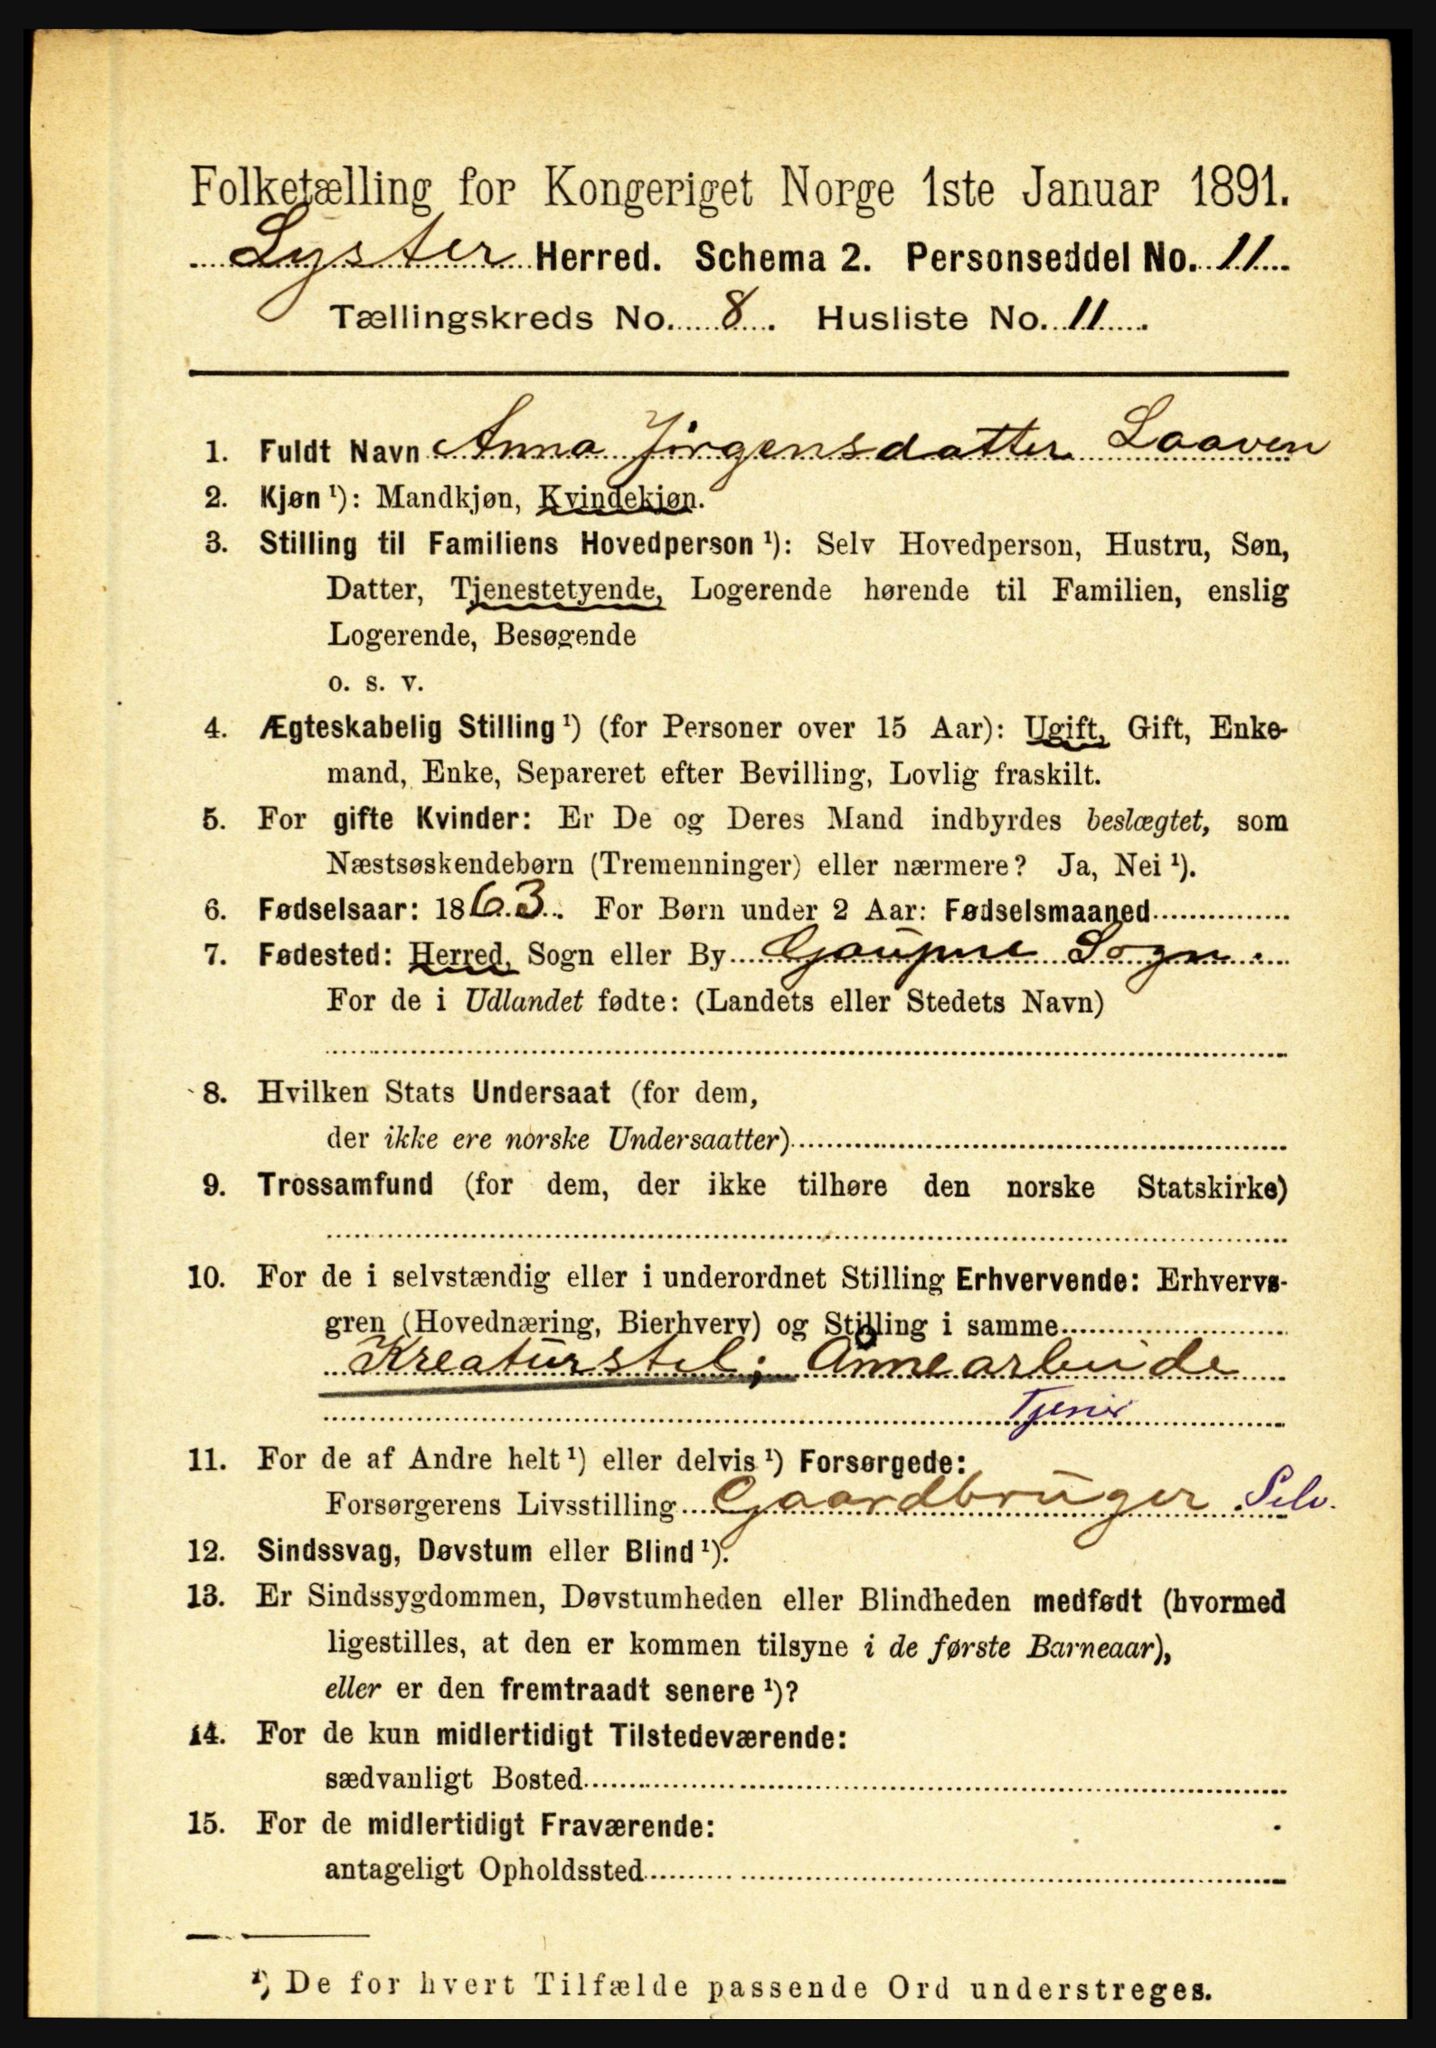 Folketælling for Kongeriget Norge 1ste Januar 1891.
Lyster Herred. Schema 2. Personseddel No. 11
Tællingskreds No. 8. Husliste No. 11.
1. Fuldt Navn Anna Jörgensdatter Laaven
2. Kjøn ¹): Mandkjøn, Kvindekjøn.
3. Stilling til Familiens Hovedperson ¹): Selv Hovedperson, Hustru, Søn,
Datter, Tjenestetyende, Logerende hørende til Familien, enslig
Logerende, Besøgende
o. s. v.
4. Ægteskabelig Stilling ¹) (for Personer over 15 Aar): Ugift, Gift, Enke-
mand, Enke, Separeret efter Bevilling, Lovlig fraskilt.
5. For gifte Kvinder: Er De og Deres Mand indbyrdes beslægtet, som
Næstsøskendebørn (Tremenninger) eller nærmere? Ja, Nei ¹).
6. Fødselsaar: 1863. For Børn under 2 Aar: Fødselsmaaned
7. Fødested: Herred, Sogn eller By Gaupne Sogn.
For de i Udlandet fødte: (Landets eller Stedets Navn)
8. Hvilken Stats Undersaat (for dem,
der ikke ere norske Undersaatter)
9. Trossamfund (for dem, der ikke tilhøre den norske Statskirke)
10. For de i selvstændig eller i underordnet Stilling Erhvervende: Erhvervs-
gren (Hovednæring, Bierhverv) og Stilling i samme
Kreaturstel; Ånnearbeide
Tjener
11. For de af Andre helt ¹) eller delvis ¹) Forsørgede:
Forsørgerens Livsstilling Gaardbruger Selv.
12. Sindssvag, Døvstum eller Blind ¹).
13. Er Sindssygdommen, Døvstumheden eller Blindheden medfødt (hvormed
ligestilles, at den er kommen tilsyne i de første Barneaar),
eller er den fremtraadt senere ¹)?
14. For de kun midlertidigt Tilstedeværende:
sædvanligt Bosted
15. For de midlertidigt Fraværende:
antageligt Opholdssted
¹) De for hvert Tilfælde passende Ord understreges.